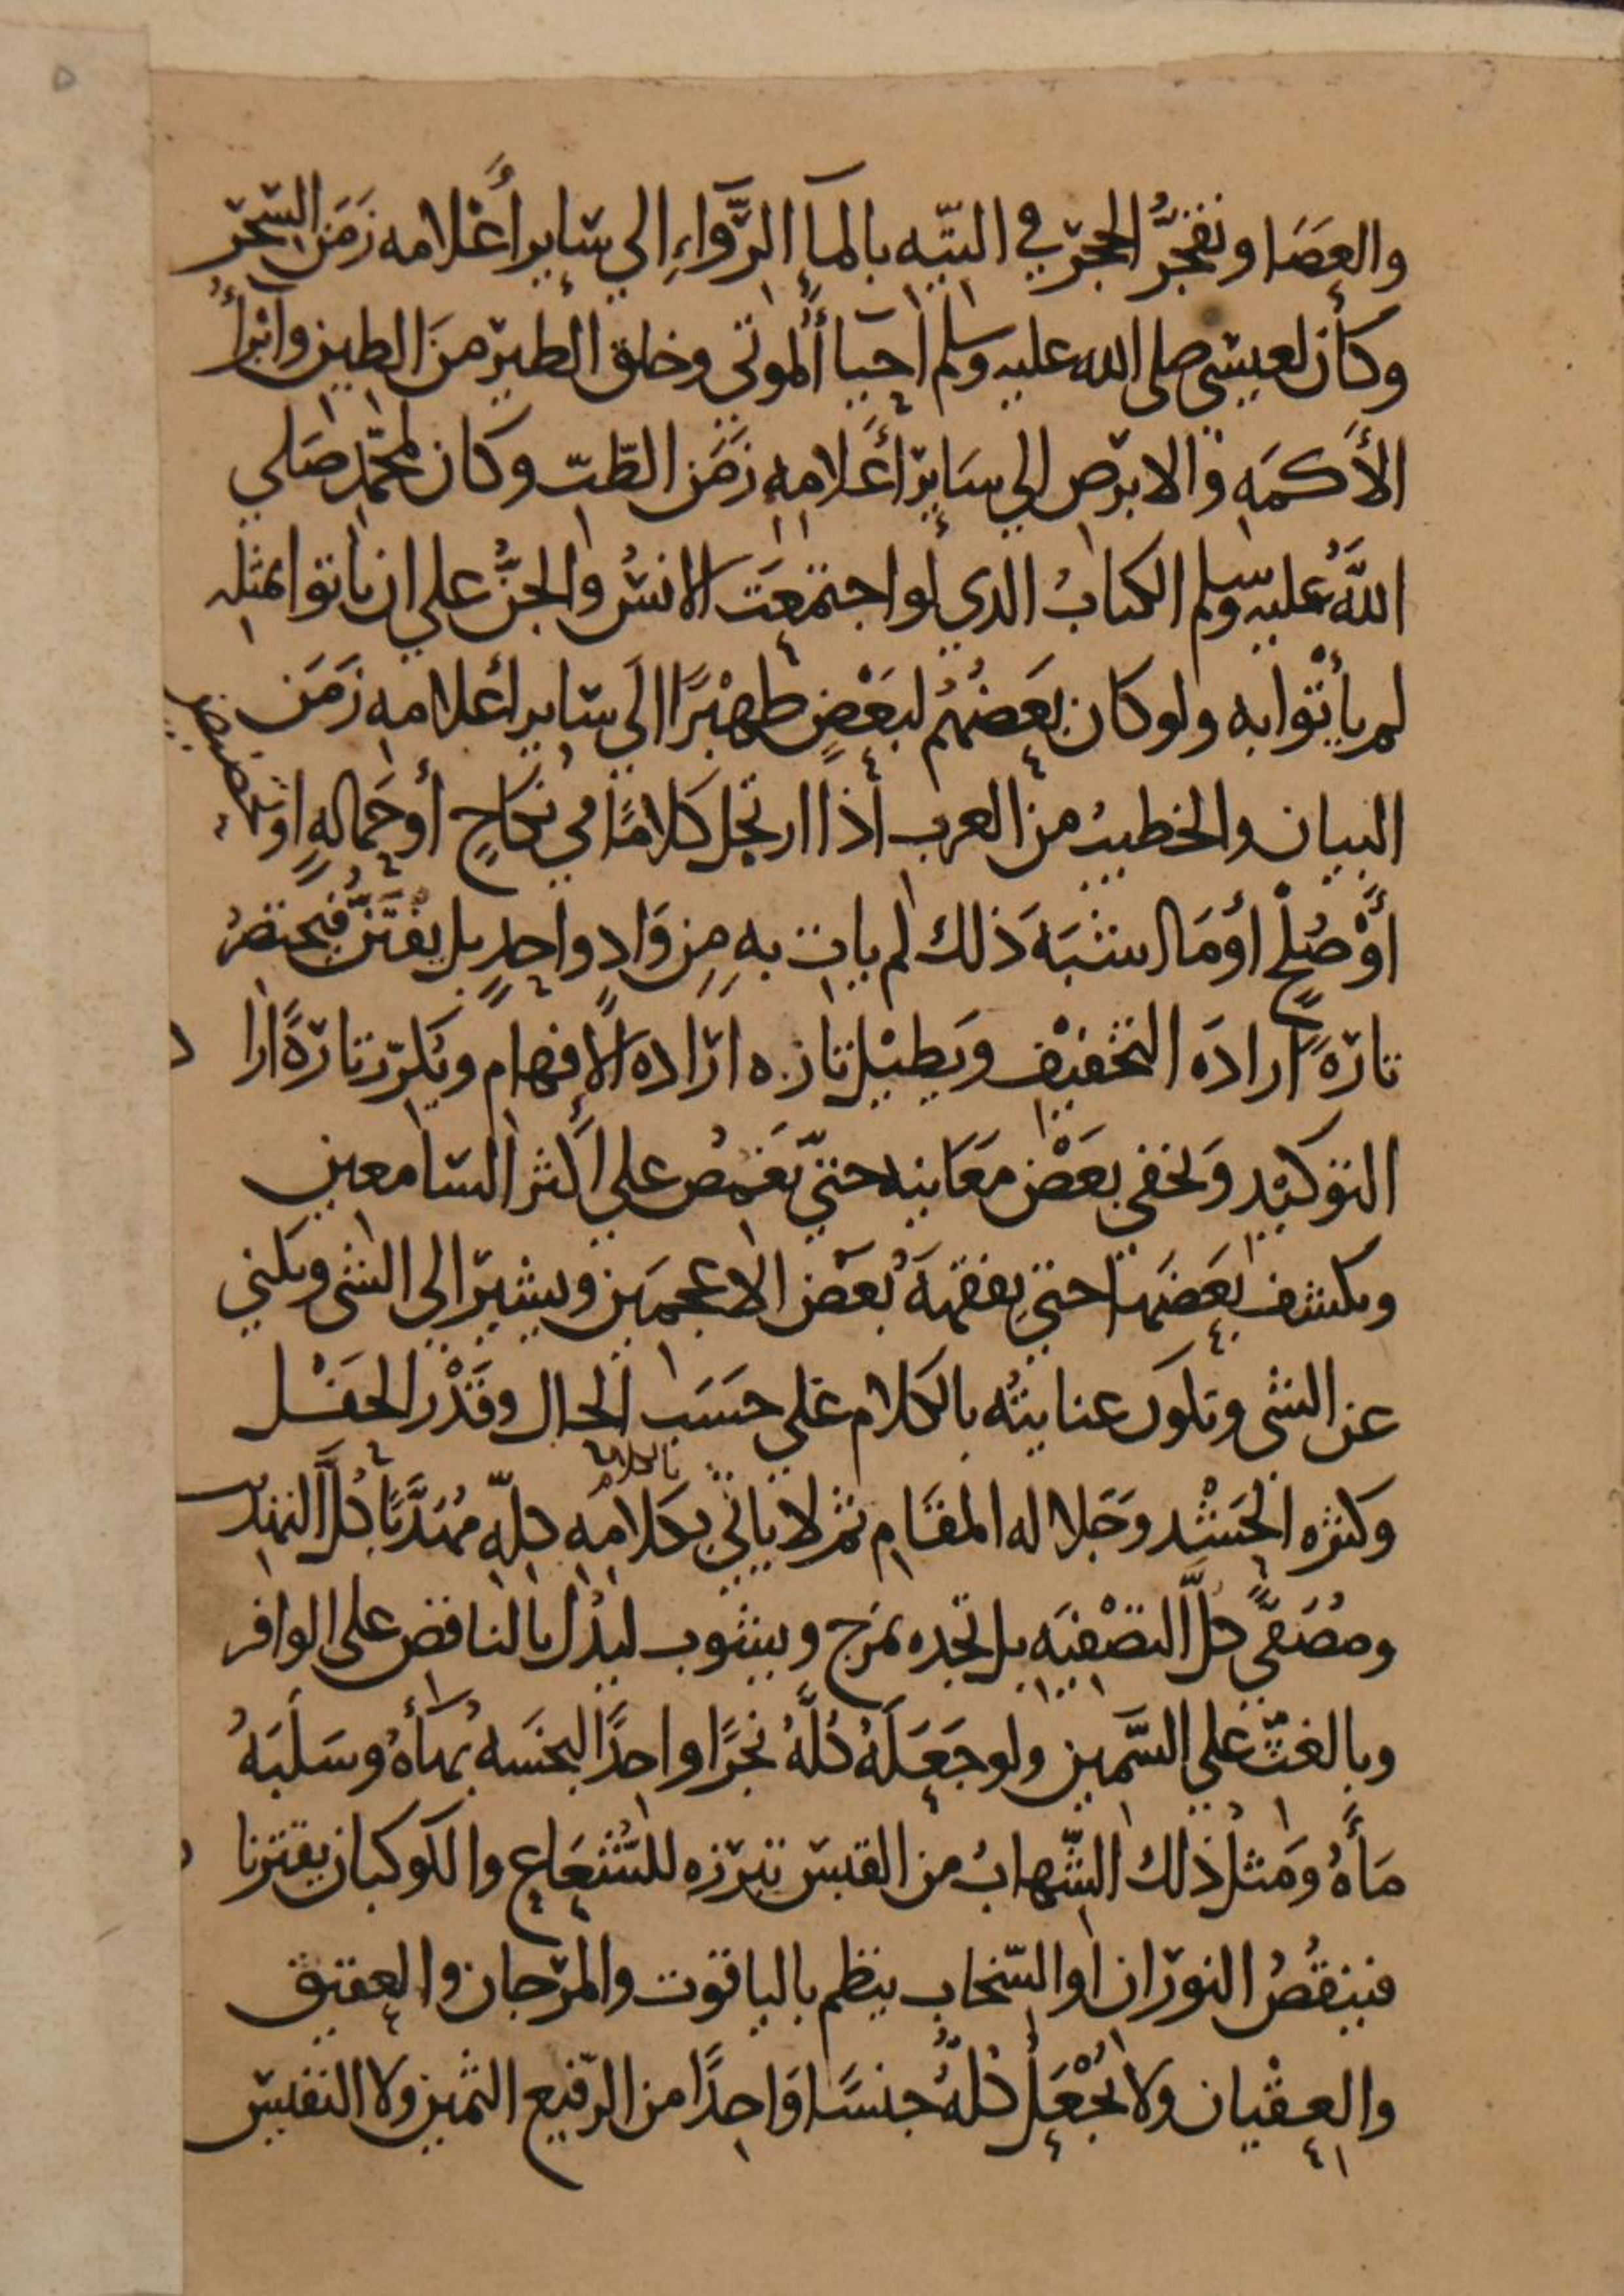 والعَصَا وتفجُّر الحجر في التيه بالمآ الرَّوَاءِ إلي سَاير أعْلامه زَمَن السّحر
وكان لعيسَي صلى الله عليه وسلم احيَا ألموتي وخلق الطير منَ الطين وابرأُ
الأَكمَهِ والابرَص إلي سَايِر أَعَلامِهِ زَمَن الطّب وكان لمحَمَّد صَلي
اللهُ عليه وسلم الكتابُ الدي لو اجتمَعَت الانسُ والجنُّ علي ان ياتوا بمثله
لم يأتُوا به ولو كان بَعَضُهُم لبَعْضٍ ظهيْرًا الَي سَاير اعلامه زَمَن
البيان والخطيبُ من العرب اذا ارتجل كلامًا في نكاحٍ أو حَمالهٍ او تحضيض
أوْ صُلحٍ أو مَا اشبَهَ ذلك لم يات بهِ مِن وَادٍ واحدٍ بل يفتَنُّ فيختصرُ
تارَهً ارادَه التخفيْف ويَطيْل تاره ارَاده الأفهام ويُكرّر تارَةً ارا د
التوكيْد وَيخفي بعَضْ مَعَانيه حتيّ يَغمُض علي أكثر السَامعين
ويكشف بَعَضَهَا حتي يفقهَهُ بعَض الاعجميَن ويشيرَ الي الشى ويكني
عن الشى وتكوَن عنايتُه بالكلام عَلي حسَبَ الحال وقَدْر الحَفْل
وكثره الحَشْد وَجَلا له المقَام ثم لا ياتي بكلامِهِ كلِّهِ مُهَذَّبًا كلَّ التهذيب
بالكلام
ومُصَفيًّ كلَّ التصْفيَهِ بل تجده يمزج ويشوب ليدُل بالناقص على الوافر
وبالغثّ علي السَّمين ولو جَعَلَهُ كلَّهُ نجرًا واحدًا لبخسَه بهاَءهُ وسَلبَهُ
مَاءَهُ وَمثلُ ذلك الشّهابُ من القبسَ تبرَزه للشُعَاع والكوكبان يقترنا ن
فينقُصُ النورَان او السّخاب ينظم بالياقوت والمرجَان والعقيق
والعِقْيان ولا يُجْعَلُ كلُّهُ جنسًا وَاحِدًا من الرّفيع الثمين ولا النفيسَ